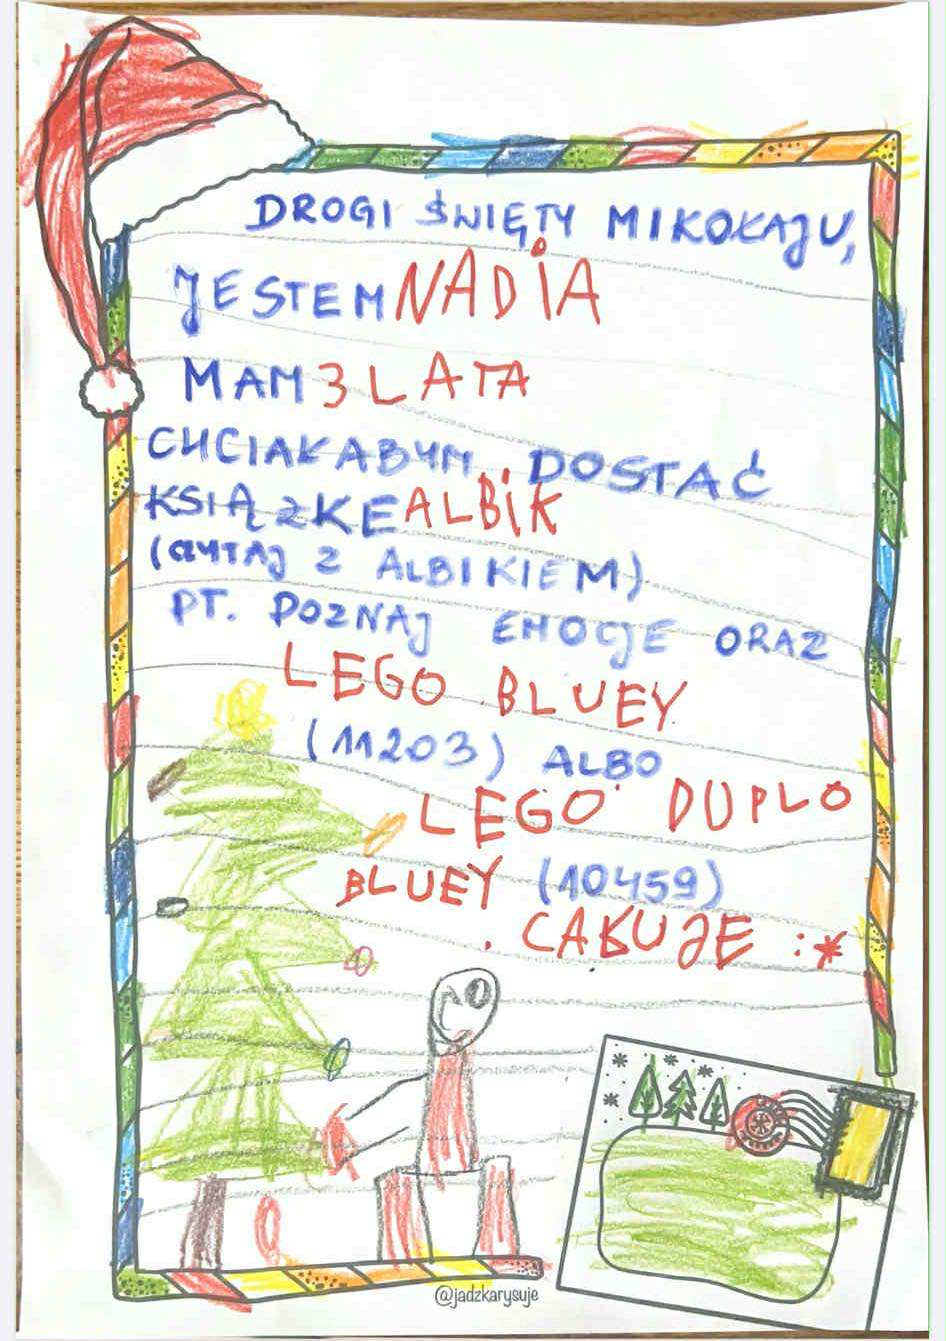 DROGI ŚWIĘTY MIKOŁAJU,
JESTEM NADIA
MAM 3 LATA
CHCIAŁABYM DOSTAĆ
KSIĄŻKE ALBIK
(CZYTAJ Z ALBIKIEM)
PT. POZNAJ EMOCJE ORAZ
LEGO BLUEY
(11203) ALBO
LEGO DUPLO
BLUEY (10459)
CAŁUJE :*
@jadzkarysuje